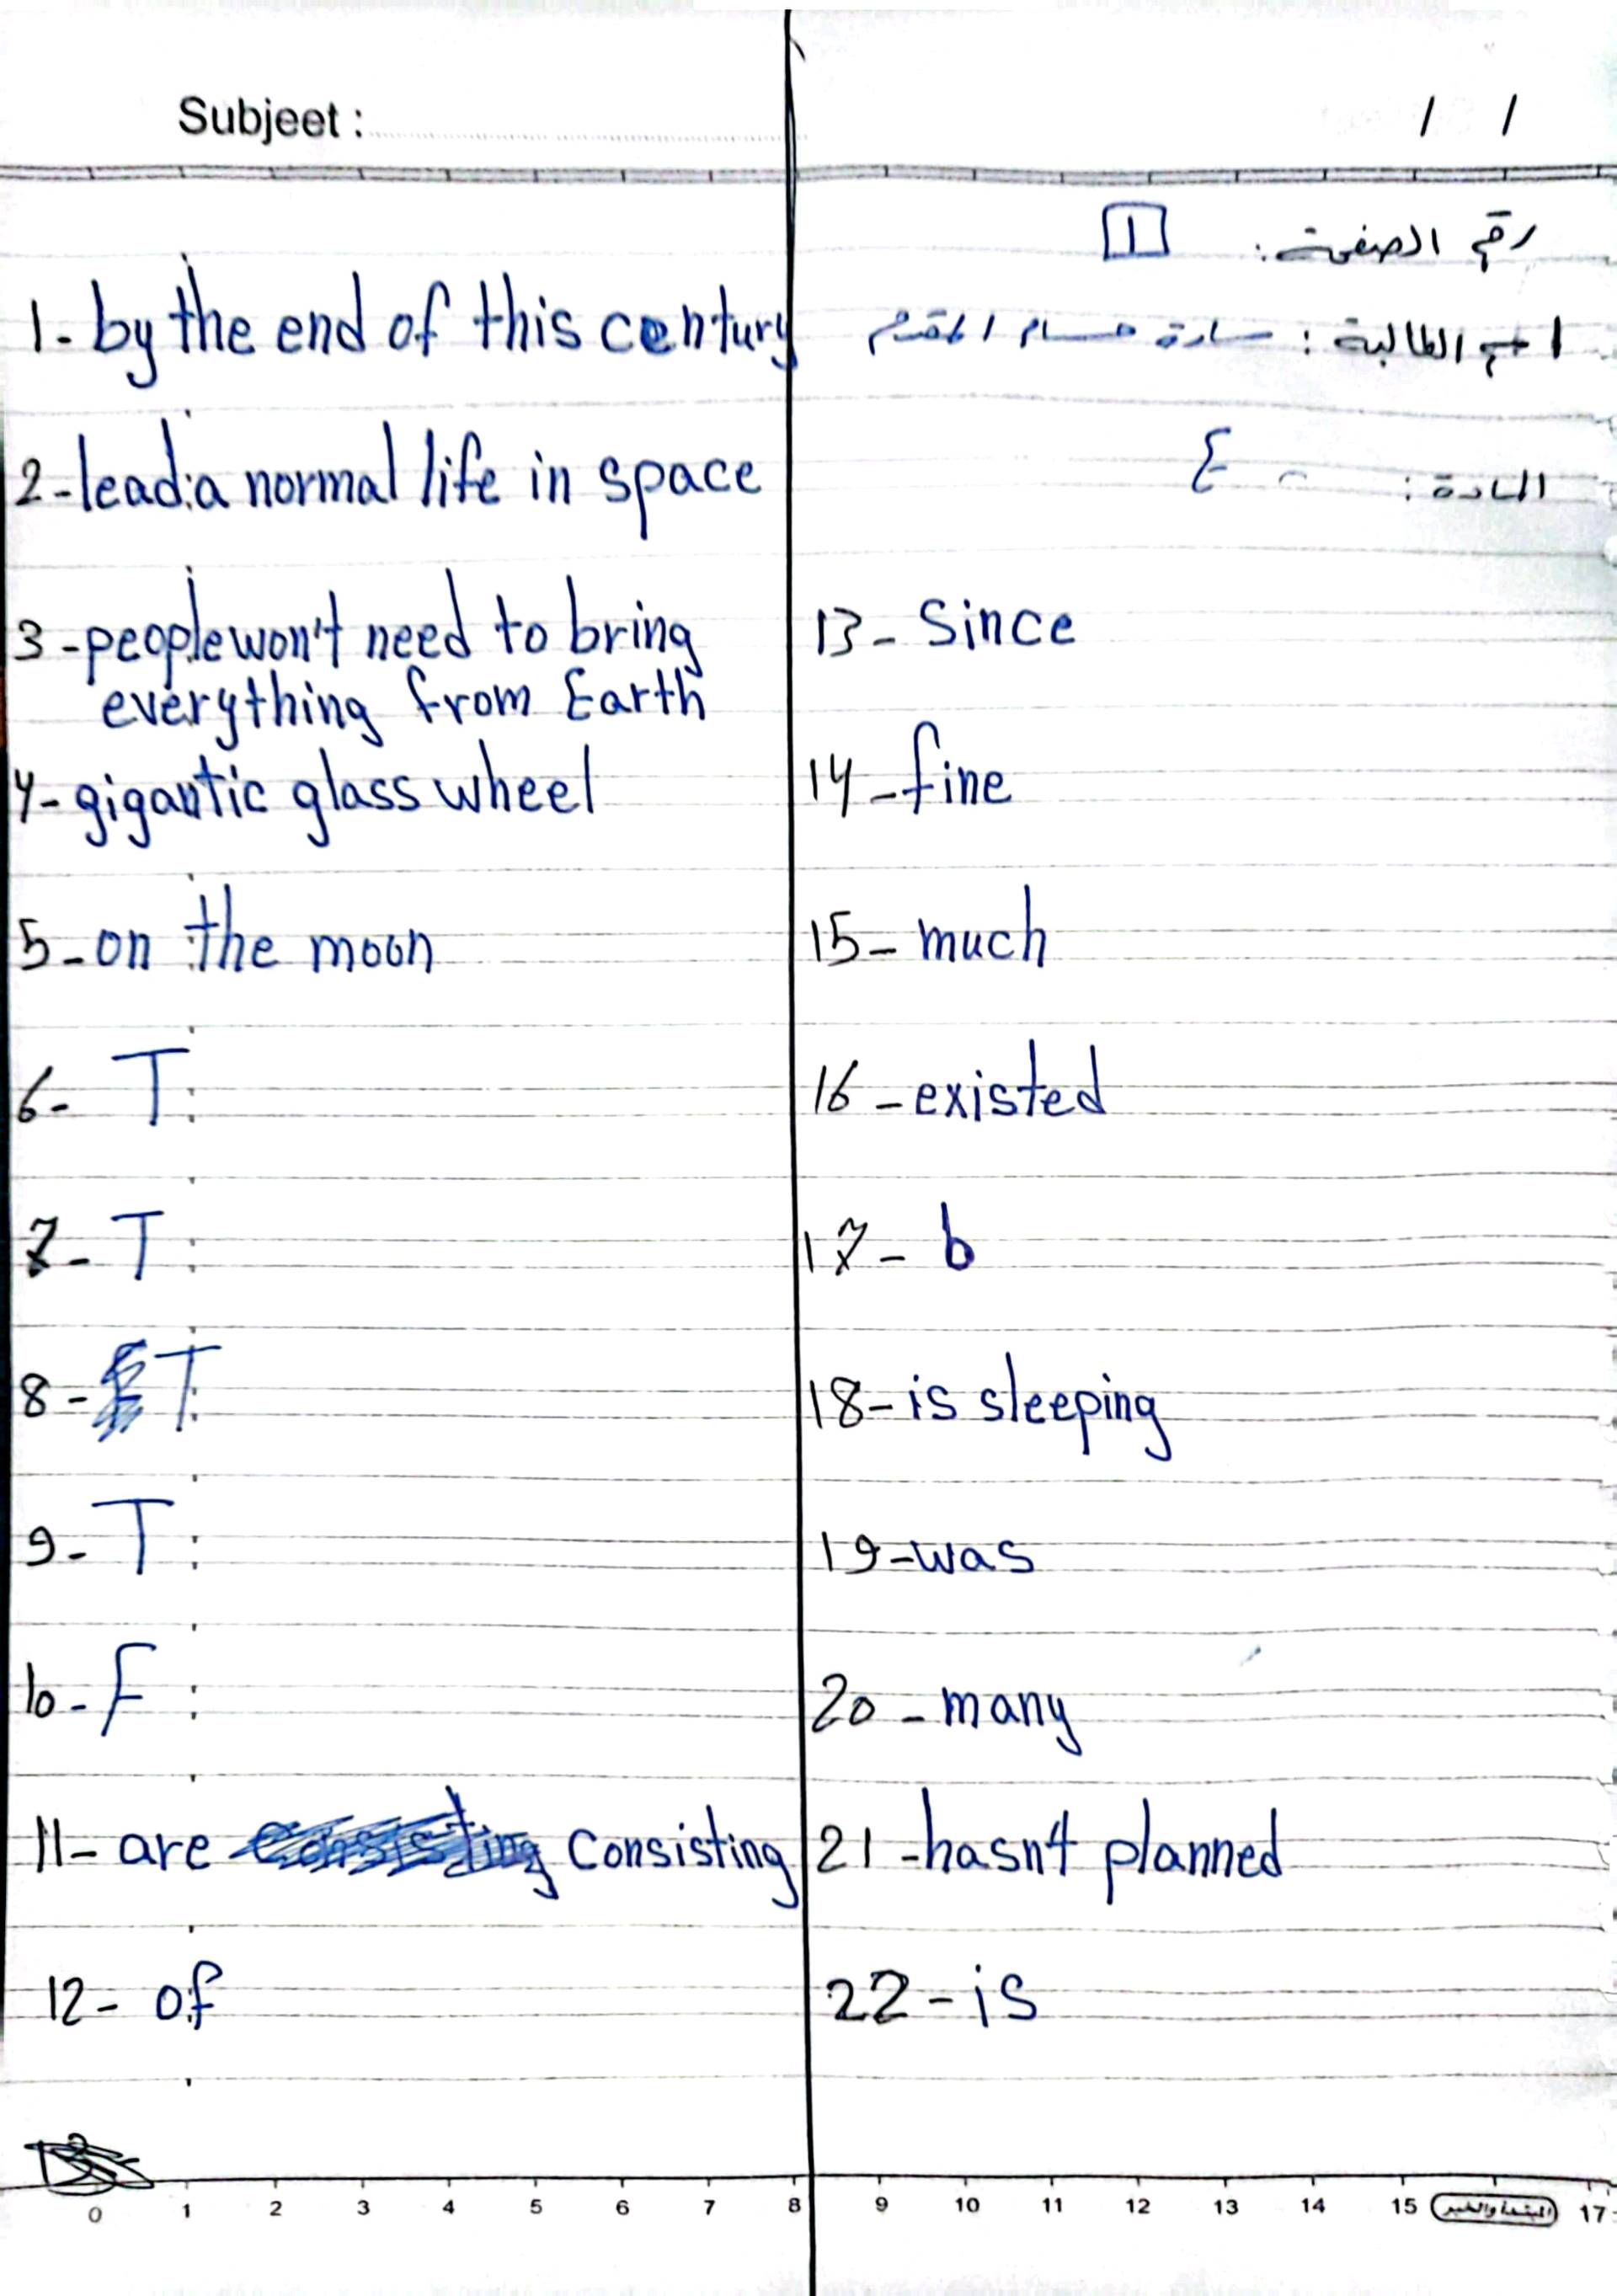 Subjeet :
/ /
رقم الصفحة: 1
اسم الطالبة : سارة حسام المقدم
المادة : E
1- by the end of this century
2- lead a normal life in space
3- people won't need to bring
everything from Earth
4- gigantic glass wheel
5- on the moon
6- T
7- T
8- T
9- T
10- F
11- are consisting
12- of
13- Since
14- fine
15- much
16- existed
17- b
18- is sleeping
19- was
20- many
21- hasn't planned
22- is
0 1 2 3 4 5 6 7 8 9 10 11 12 13 14 15 17